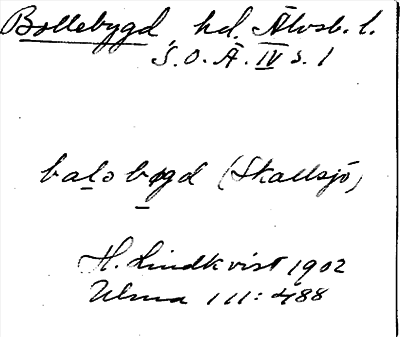 Bollebygd, hd. Älvsb. l.
S.O.Ä. IV s. 1
balo bygd (Skallsjö)
H. Lindkvist 1902
Ulma 111:488